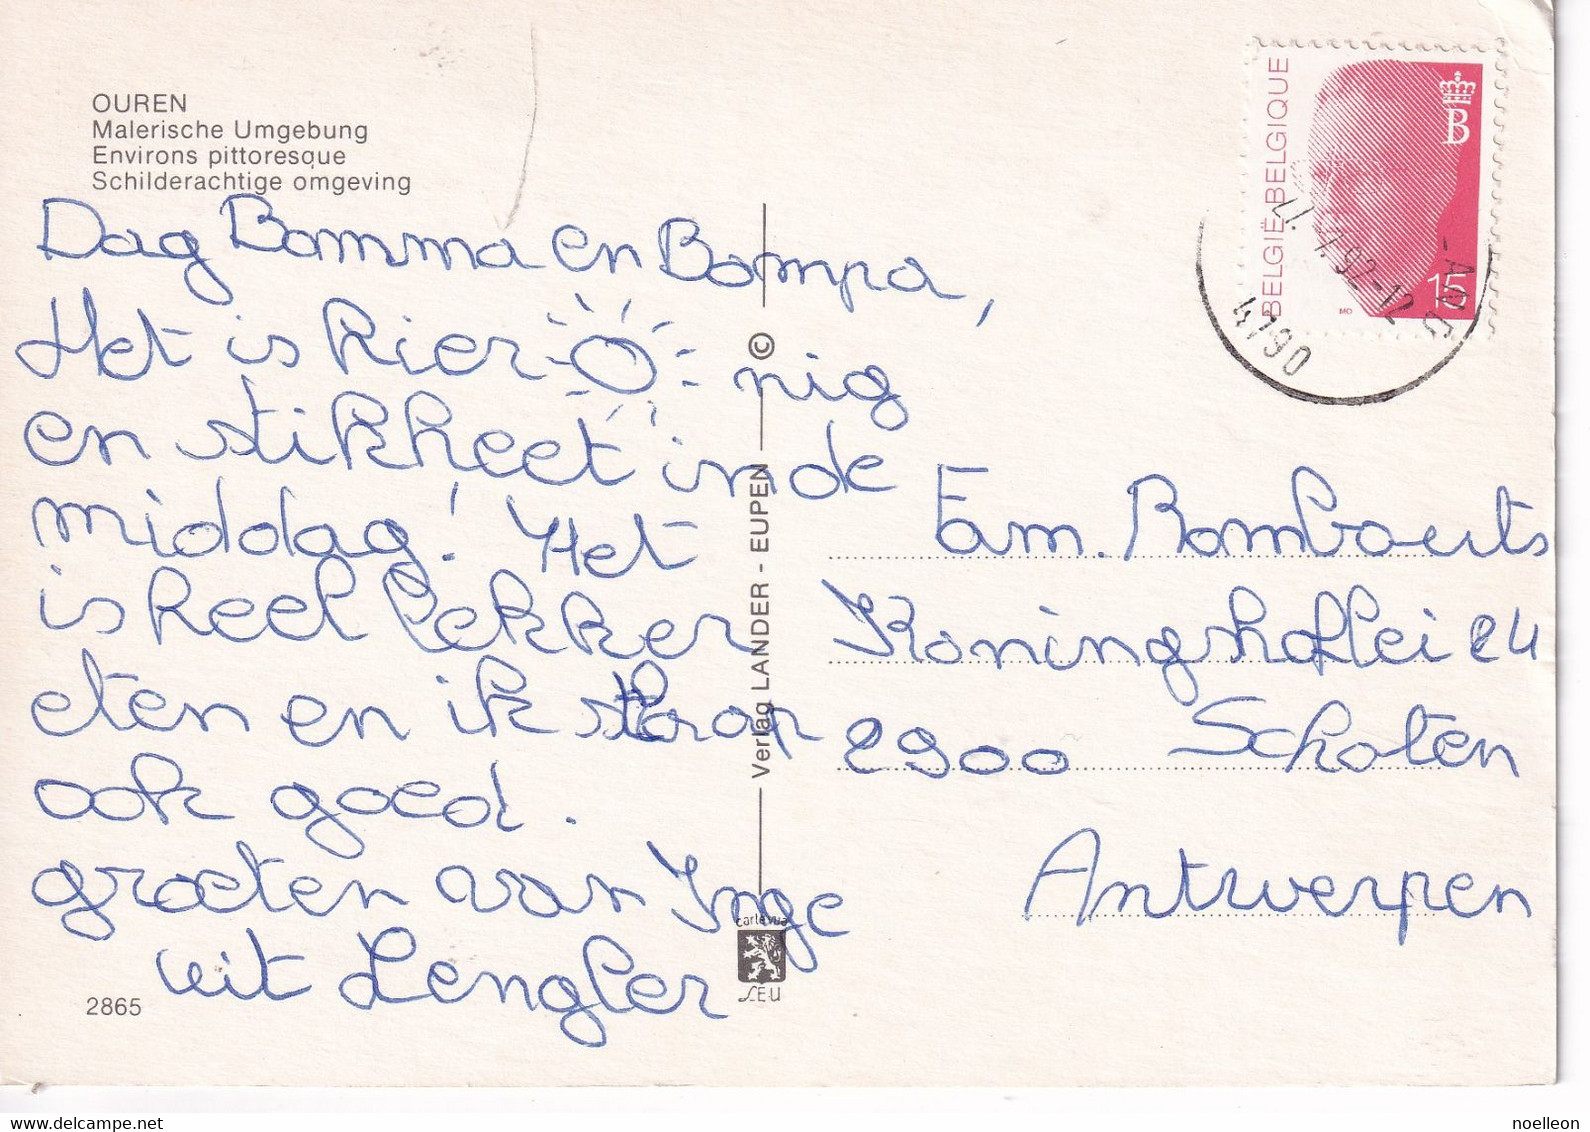 OUREN
Malerische Umgebung
Environs pittoresque
Schilderachtige omgeving
Dag Bomma en Bompa,
Het is hier nig
en stikheet in de
middag! Het
is heel lekker
eten en ik slaap
ook goed.
groeten van Inge
uit Lengler
2865
Verlag LANDER - EUPEN ©
carte vue
L.E.U
BELGIË-BELGIQUE
B
15
MO
4790
92-12
Fam. Rombouts
Koninghoflei 24
2900 Schoten
Antwerpen
www.delcampe.net
noelleon